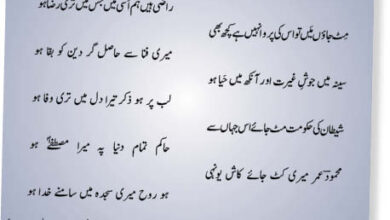 راضی ہیں ہم اُسی میں جس میں تری رضا ہو
مِٹ جاؤں مَیں تو اس کی پروا نہیں ہے کچھ بھی
میری فنا سے حاصل گر دین کو بقا ہو
سینہ میں جوشِ غیرت اور آنکھ میں حَیا ہو
لب پر ہو ذکر تیرا دل میں تری وفا ہو
شیطان کی حکومت مٹ جائے اس جہاں سے
حاکم تمام دنیا پہ میرا مصطفٰےؐ ہو
محمودؔ عمر میری کٹ جائے کاش یونہی
ہو روح میری سجدہ میں سامنے خدا ہو